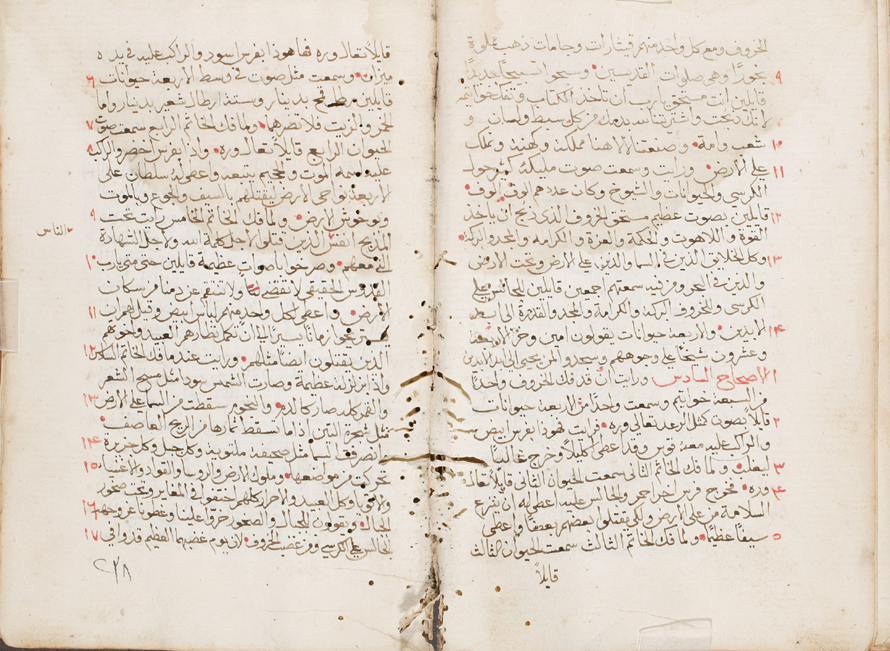 الخروف ومع كل واحد منهم قيثارات وجامات ذهب مملوة
٩ بخورًا وهي صلوات القديسين وسبحوا تسبيحًا جديدًا
قايلين انت مستحق يارب ان تاخذ الكتاب وتفك خواتمه
لانك ذبحت واشتريتنا بدمك من كل سبط ولسان و
١٠ شعب وامة وصنعتنا لالاهنا مملكة وكهنة ونملك
١١ على الارض ورايت وسمعت صوت مليكة كثير حول
الكرسي والحيوانات والشيوخ وكان عددهم الوف الوف
١٢ قايلين بصوت عظيم مستحق الخروف الذي ذبح ان ياخذ
القوة واللاهوت والحكمة والعزة والكرامة والمجد والبركة
١٣ وكل الخلايق الذين في السما والذين على الارض وتحت الارض
والذين في البحر ومن فيه سمعتهم اجمعين قايلين للجالس على
الكرسي وللخروف البركة والكرامة والمجد والقدرة الى ابد
١٤ الابدين والاربعة حيوانات يقولون امين وخر الاربعة
وعشرون شيخًا على وجوههم وسجدوا لمن يحيى الى ابد الابدين
١ الاصحاح السادس ورايت ان قد فك الخروف واحدًا
من السبعة خواتيم وسمعت واحدًا من الاربعة حيوانات
٢ قايلاً بصوت كمثل الرعد تعالى وره فرايت فهوذا بفرس ابيض
والراكب عليه معه قوس وقد اعطي كليلاً وخرج غالبًا
٣ ليغلب ولما فك الخاتم الثاني سمعت الحيوان الثاني قايلاً تعاله
٤ وره فخرج فرس اخر احمر والجالس عليه اعطي له ان ينزع
السلامة من على الارض ولكي يقتلوا بعضهم بعضًا واعطي
٥ سيفًا عظيمًا ولما فك الخاتم الثالث سمعت الحيوان الثالث
قايلاً
قايلاً تعال وره فهاهوذا بفرس اسود والراكب عليه في يده
٦ ميزان وسمعت مثل صوت في وسط الاربعة حيوانات
قايلين رطل قمح بدينار وستة ارطال شعير بدينار واما
٧ الخمر والزيت فلا تضرهما ولما فك الخاتم الرابع سمعت صوت
٨ الحيوان الرابع قايلاً تعال وره واذا بفرس اخضر والراكب
عليه اسمه الموت والجحيم يتبعه واعطي له سلطان على
الاربعة نواحي الارض ليقتلهم بالسيف والجوع وبالموت
٩ وبوحوش الارض ولما فك الخاتم الخامس رايت تحت
المذبح انفس الذين قتلوا لاجل كلمة الله ولاجل الشهادة
الناس
١٠ التي معهم وصرخوا باصوات عظيمة قايلين حتى متى يارب
القدوس الحقيقي لا تقضي لنا ولا تنتقم عن دمنا من سكان
١١ الارض واعطي لكل واحد منهم لباس ابيض وقيل لهم ان
يستريحوا زمانًا يسيرًا الى ان تكمل نظارهم العبيد واخوتهم
١٢ الذين يقتلون ايضًا مثلهم ورايت عندما فك الخاتم السادس
واذا بزلزلة عظيمة وصارت الشمس سودا مثل مسح الشعر
١٣ والقمر كله صار كالدم والنجوم سقطت من السما على الارض
مثل شجرة التين اذا ما تسقط ثمارها من الريح العاصف
١٤ وانصرفت السما مثل صحيفة ملتوية وكل جبل وكل جزيرة
١٥ تحركت من مواضعها وملوك الارض والروسا والقواد والاغنيا
والاقويا وكل العبيد والاحرار كلهم اختفوا في المغاير وتحت صخور
١٦ الجبال ويقولون للجبال والصخور خروا علينا وغطونا عن وجه
١٧ الجالس على الكرسي ومن غضب الخروف لان يوم غضبهما العظيم قد وافى
٢٢٨